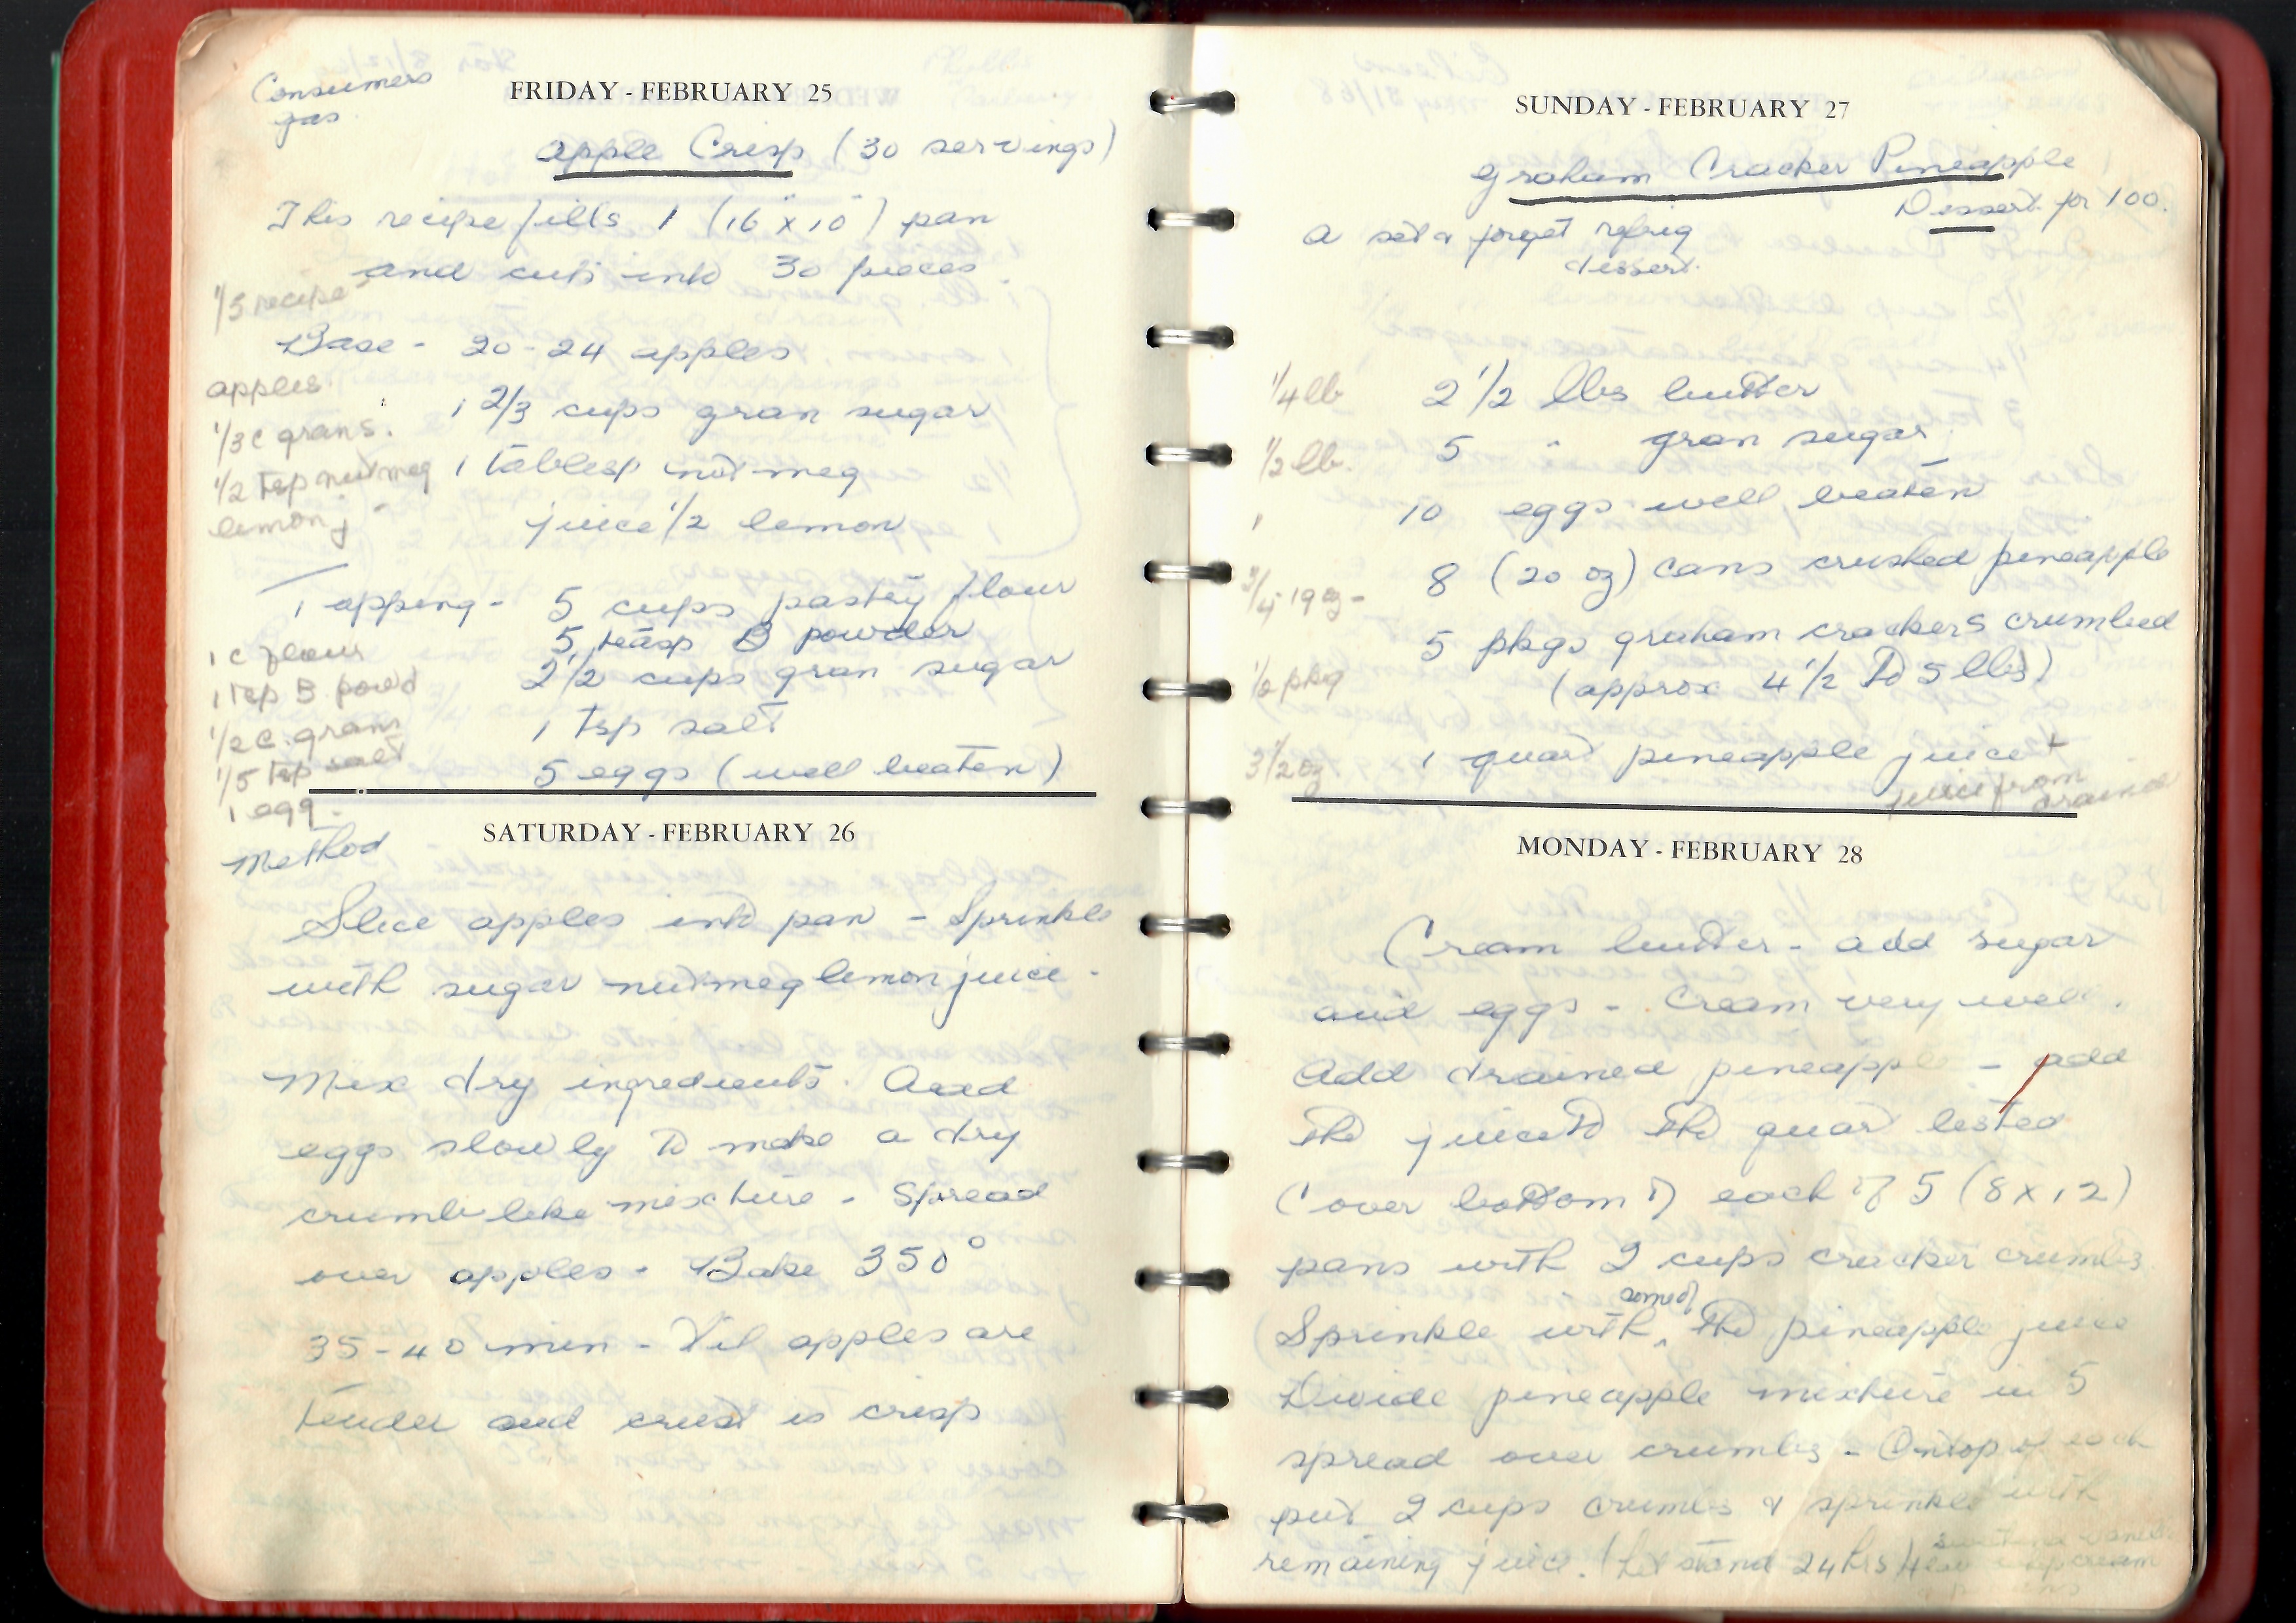 Consumers
gas
FRIDAY - FEBRUARY 25
Apple Crisp (30 servings)
This recipe fills 1 (16" x 10") pan
and cuts into 30 pieces
1/5 recipe
Base - 20-24 apples
apples.
1 2/3 cups gran sugar
1/3 c grans.
1 tablesp nutmeg
1/2 tsp nutmeg
juice 1/2 lemon
lemon j
Topping - 5 cups pastry flour
5 teasp B powder
1 c flour
2 1/2 cups gran sugar
1 tsp B powd
1 tsp salt
1/2 c. gran
1/5 tsp salt
5 eggs (well beaten)
1 egg.
SATURDAY - FEBRUARY 26
Method
Slice apples into pan - Sprinkle
with sugar nutmeg lemon juice -
Mix dry ingredients. Add
eggs slowly to make a dry
crumb like mixture - Spread
over apples - Bake 350°
35-40 min - Til apples are
tender and crust is crisp
SUNDAY - FEBRUARY 27
Graham Cracker Pineapple
Dessert for 100.
A set & forget refrig
dessert.
1/4 lb 2 1/2 lbs butter
1/2 lb. 5 " gran sugar
1 10 eggs well beaten
8 (20 oz) cans crushed pineapple
3/4 19 oz -
5 pkgs graham crackers crumbled
1/2 pkg (approx 4 1/2 to 5 lbs)
3 1/2 oz 1 quart pineapple juice +
juice from
drained
MONDAY - FEBRUARY 28
Cream butter - add sugar
and eggs - Cream very well.
Add drained pineapple - add
the juice to the quart listed
(Cover bottom of each of 5 (8 x 12)
pans with 2 cups cracker crumbs
some of
Sprinkle with the pineapple juice
Divide pineapple mixture in 5
spread over crumbs - On top of each
put 2 cups crumbs & sprinkle with
remaining juice. (Let stand 24 hrs)